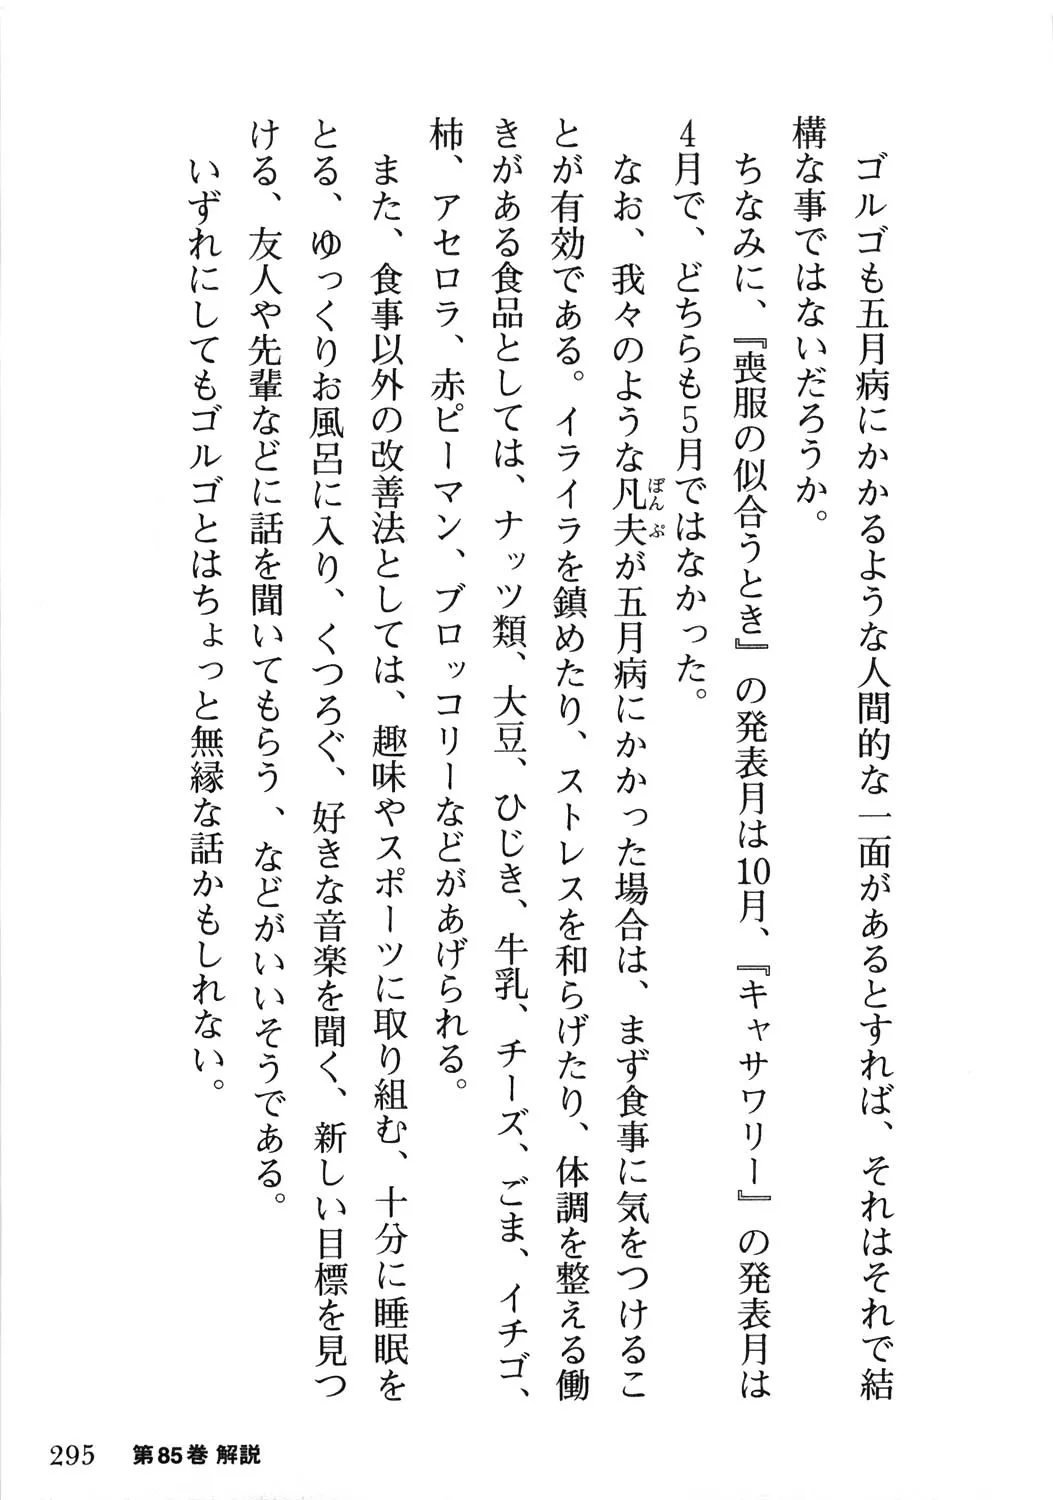 ゴルゴも五月病にかかるような人間的な一面があるとすれば、それはそれで結
構な事ではないだろうか。
ちなみに、『喪服の似合うとき』の発表月は10月、『キャサワリー』の発表月は
4月で、どちらも5月ではなかった。
なお、我々のような凡夫が五月病にかかった場合は、まず食事に気をつけるこ
ぼんぷ
とが有効である。イライラを鎮めたり、ストレスを和らげたり、体調を整える働
きがある食品としては、ナッツ類、大豆、ひじき、牛乳、チーズ、ごま、イチゴ、
柿、アセロラ、赤ピーマン、ブロッコリーなどがあげられる。
また、食事以外の改善法としては、趣味やスポーツに取り組む、十分に睡眠を
とる、ゆっくりお風呂に入り、くつろぐ、好きな音楽を聞く、新しい目標を見つ
ける、友人や先輩などに話を聞いてもらう、などがいいそうである。
いずれにしてもゴルゴとはちょっと無縁な話かもしれない。
295 第85巻 解説